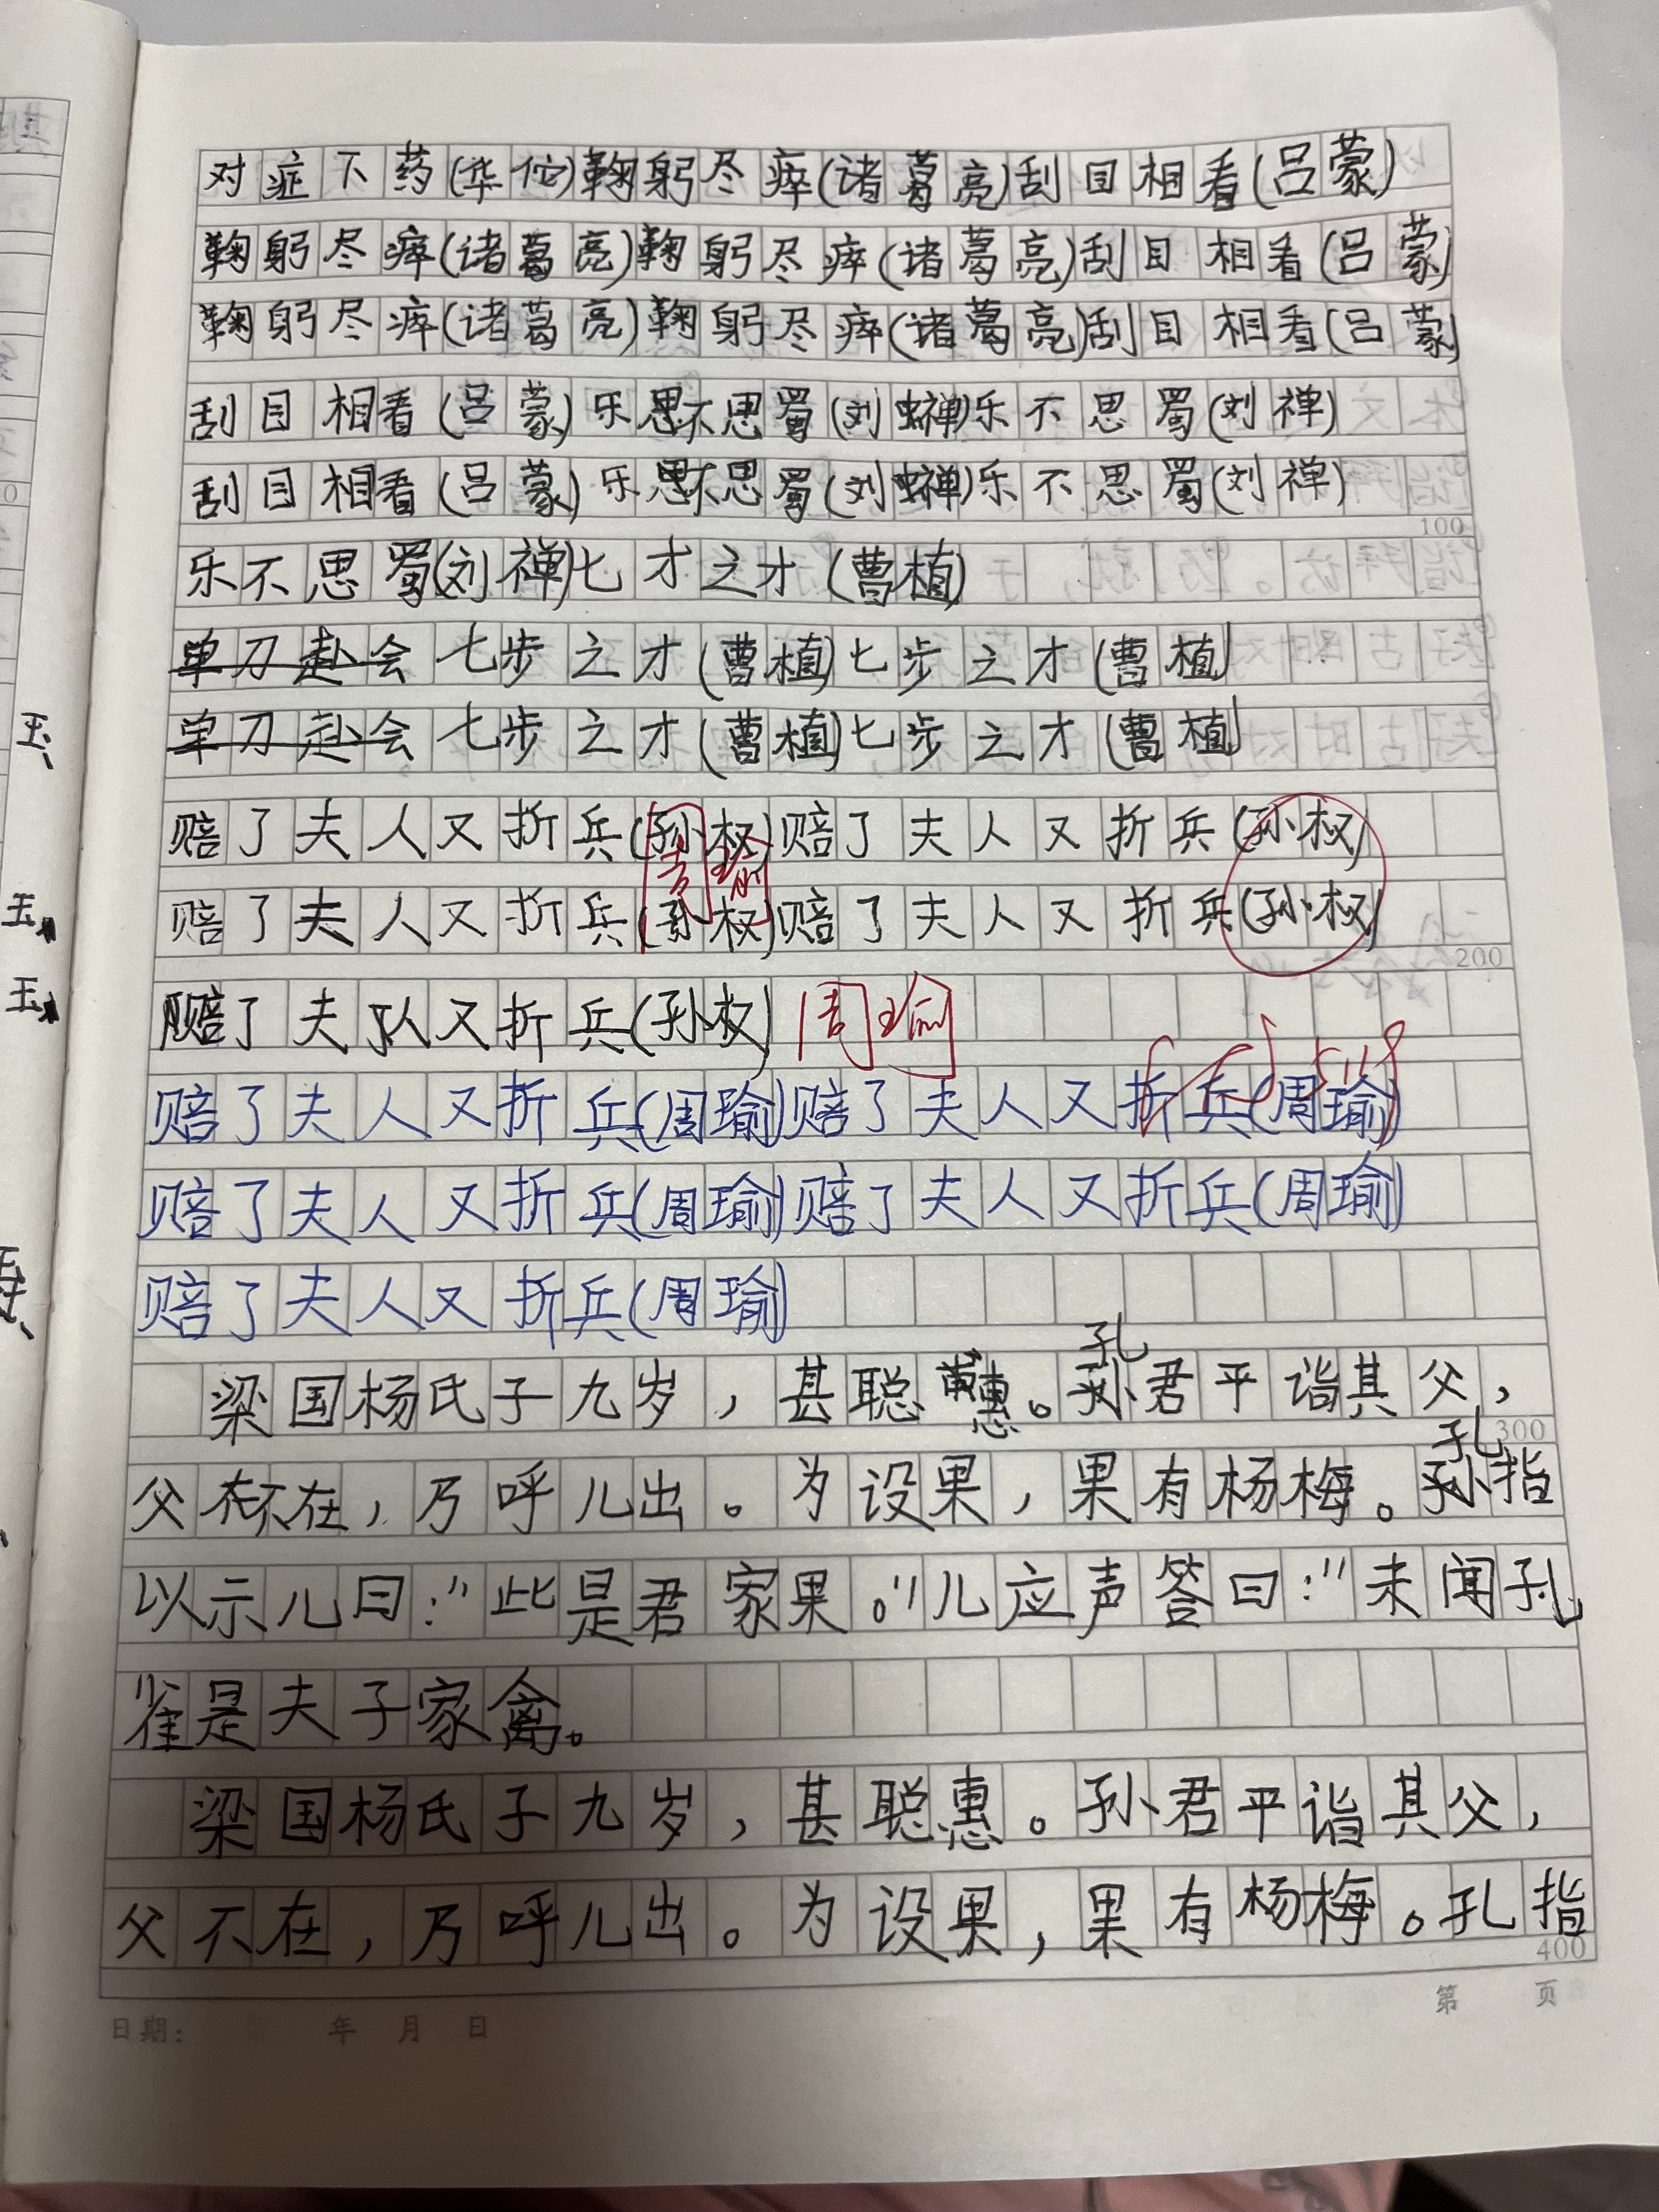 对症下药(华佗)鞠躬尽瘁(诸葛亮)刮目相看(吕蒙)
鞠躬尽瘁(诸葛亮)鞠躬尽瘁(诸葛亮)刮目相看(吕蒙)
鞠躬尽瘁(诸葛亮)鞠躬尽瘁(诸葛亮)刮目相看(吕蒙)
刮目相看(吕蒙)乐不思蜀(刘禅)乐不思蜀(刘禅)
刮目相看(吕蒙)乐不思蜀(刘禅)乐不思蜀(刘禅)
100
乐不思蜀(刘禅)七才之才(曹植)
单刀赴会七步之才(曹植)七步之才(曹植)
单刀赴会七步之才(曹植)七步之才(曹植)
赔了夫人又折兵(孙权)赔了夫人又折兵(孙权)
周瑜
赔了夫人又折兵(孙权)赔了夫人又折兵(孙权)
200
赔了夫人又折兵(孙权)周瑜
赔了夫人又折兵(周瑜)赔了夫人又折兵(周瑜)
赔了夫人又折兵(周瑜)赔了夫人又折兵(周瑜)
赔了夫人又折兵(周瑜)
孔
梁国杨氏子九岁，甚聪惠。孙君平诣其父，
300
孔
父不在，乃呼儿出。为设果，果有杨梅。孙指
以示儿曰："此是君家果。"儿应声答曰："未闻孔
雀是夫子家禽。
梁国杨氏子九岁，甚聪惠。孙君平诣其父，
父不在，乃呼儿出。为设果，果有杨梅。孔指
400
第 页
日期: 年 月 日